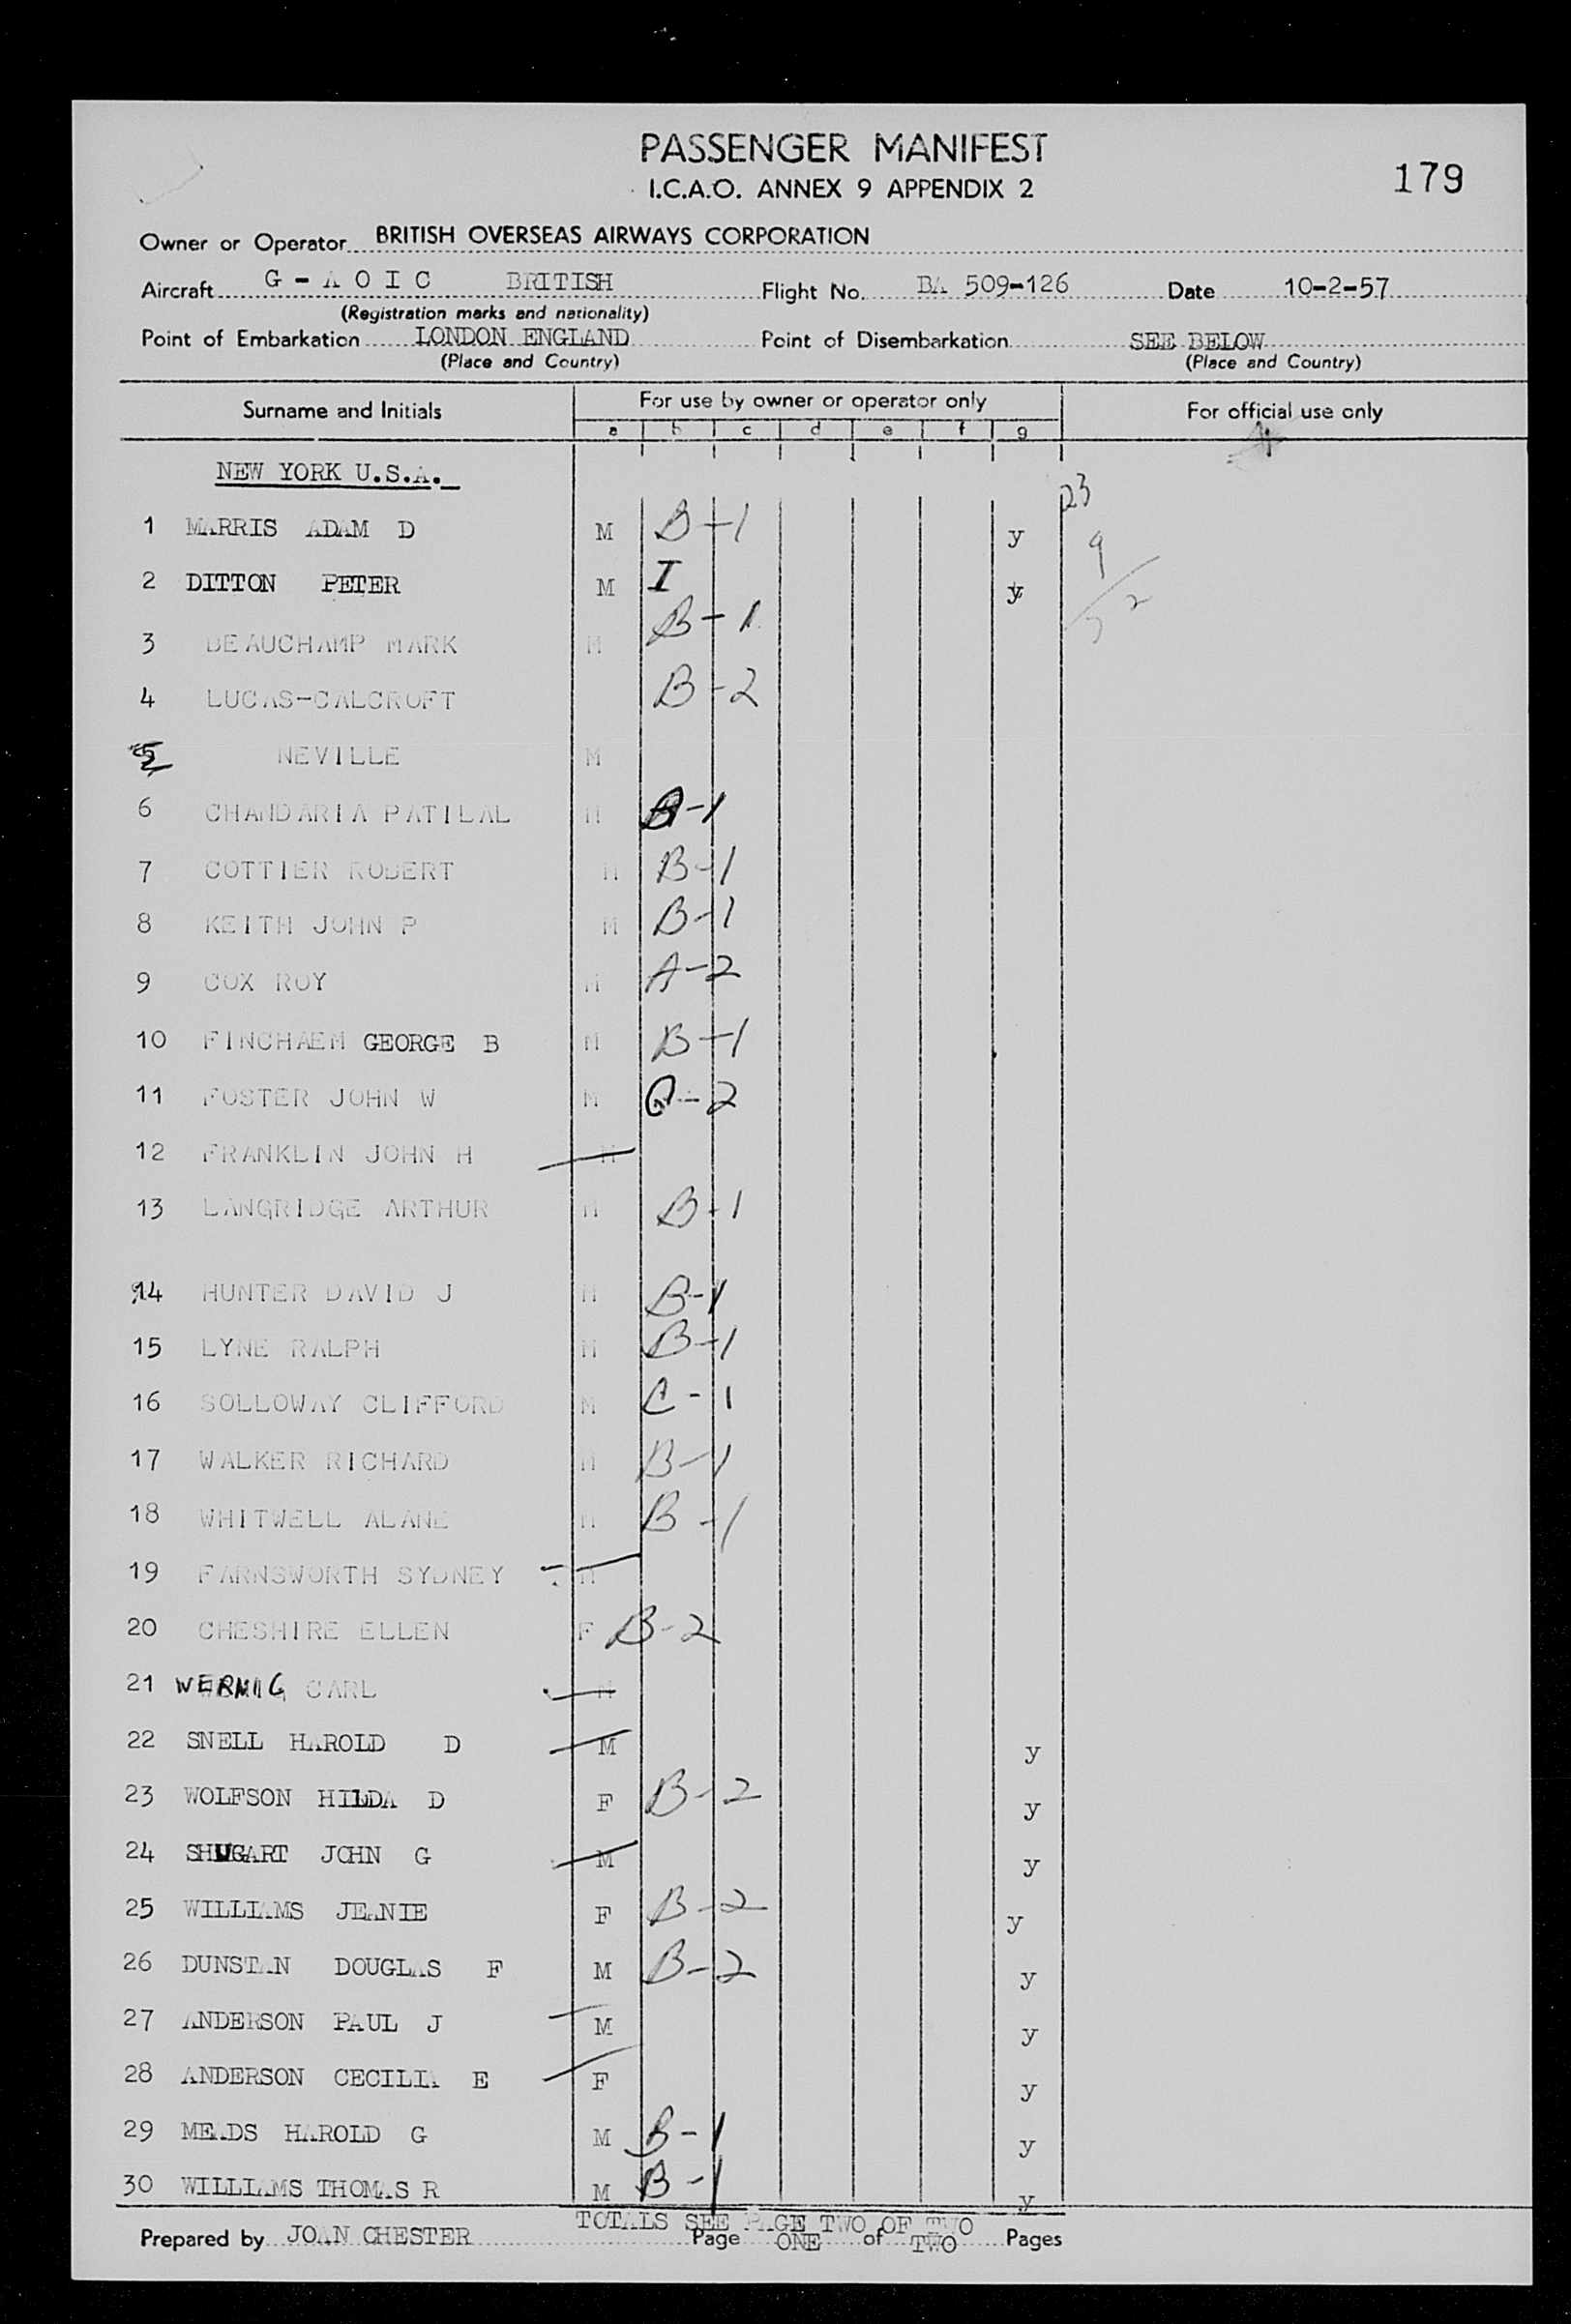 PASSENGER MANIFEST
I.C.A.O. ANNEX 9 APPENDIX 2
179
Owner or Operator BRITISH OVERSEAS AIRWAYS CORPORATION
Aircraft G - A O I C BRITISH Flight No. BA 509-126 Date 10-2-57
(Registration marks and nationality)
Point of Embarkation LONDON ENGLAND Point of Disembarkation SEE BELOW
(Place and Country) (Place and Country)
Surname and Initials For use by owner or operator only For official use only
a b c d e f g
NEW YORK U.S.A.
23
1 MARRIS ADAM D M B-1 y
9
2 DITTON PETER M I y
2
3 BEAUCHAMP MARK M B-1
4 LUCAS-CALCROFT B-2
5 NEVILLE M
6 CHANDARIA PATILAL M B-1
7 COTTIER ROBERT M B-1
8 KEITH JOHN P M B-1
9 COX ROY M A-2
10 FINCHAEM GEORGE B M B-1
11 FOSTER JOHN W M G-2
12 FRANKLIN JOHN H M
13 LANGRIDGE ARTHUR M B-1
14 HUNTER DAVID J M B-1
15 LYNE RALPH M B-1
16 SOLLOWAY CLIFFORD M C-1
17 WALKER RICHARD M B-1
18 WHITWELL ALANE M B-1
19 FARNSWORTH SYDNEY M
20 CHESHIRE ELLEN F B-2
21 WERNIG CARL M
22 SNELL HAROLD D M y
23 WOLFSON HILDA D F B-2 y
24 SHUGART JOHN G M y
25 WILLIAMS JEANIE F B-2 y
26 DUNSTAN DOUGLAS F M B-2 y
27 ANDERSON PAUL J M y
28 ANDERSON CECILIA E F y
29 MEADS HAROLD G M B-1 y
30 WILLIAMS THOMAS R M B-1 y
TOTALS SEE PAGE TWO OF TWO
Prepared by JOAN CHESTER Page ONE of TWO Pages